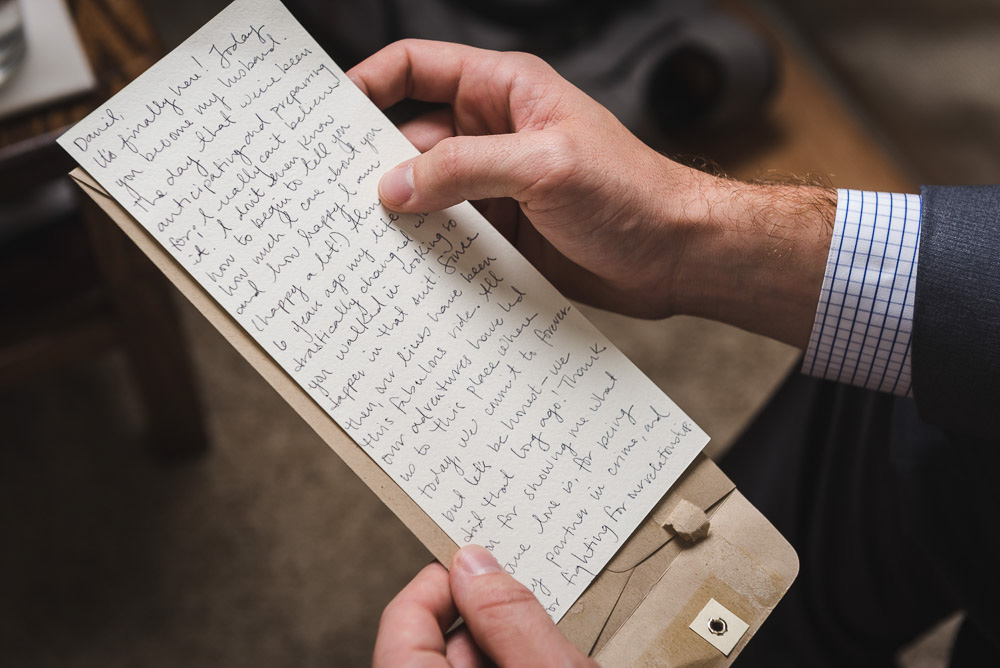 Daniel,
It's finally here! Today
you become my husband.
The day that we've been
anticipating and preparing
for; I really can't believe
it. I don't even know
how to begin to tell you
how much I care about you
and how happy I am
(happy a lot!)
6 years ago my life
drastically changed
you walked in looking
dapper in that suit! Since
then, our lives have been
this fabulous ride. All
our adventures have led
us to this place where
today, we commit to forever
but let's be honest - we
did that long ago! Thank
for showing me what
love is, for being
partner in crime, and
fighting for our relationship.